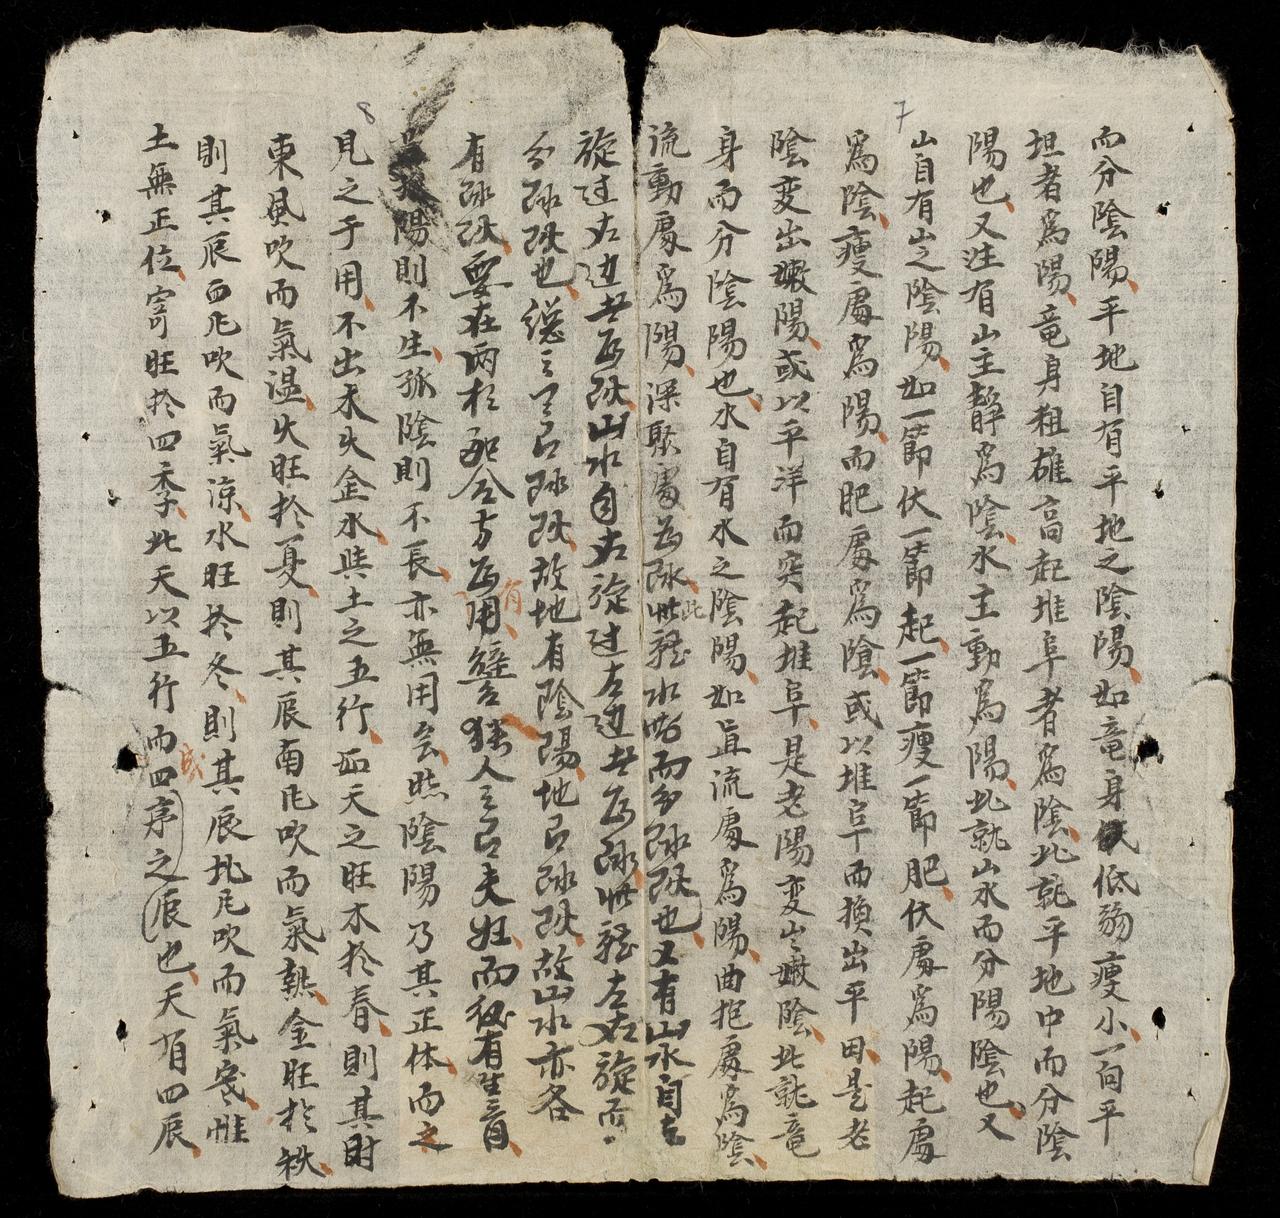 7
而分陰陽平地自有平地之陰陽如竜身低弱瘦小一向平
坦者為陽竜身粗雄高起堆阜者為陰此就平地中而分陰
陽也又注有山主靜為陰水主動為陽此就山水而分陽陰也又
山自有山之陰陽如一節伏一節起一節瘦一節肥伏處為陽起處
為陰瘦處為陽而肥處為陰或以堆阜而換出平田是老
陰变出嫩陽或以平洋而突起堆阜是老陽变出嫩陰此就竜
身而分陰陽也水自有水之陰陽如直流處為陽曲抱處為陰
流動處為陽深聚處為阥此雖水略而分阥阦也又有山水自左
旋过右边者為阦山水自右旋过左边者為阥此雖左右旋而
分阥阦也總之只是阥阦故地有陰陽地有阥阦故山水亦各
有阥阦要在兩相配合方為有用譬猶人之有夫妇而後有生育
孤陽則不生孤陰則不長亦無用会無陰陽乃其正体而之
8
見之于用不出木火金水與土之五行如天之旺木於春則其时
東風吹而氣温火旺於夏則其辰南风吹而氣熱金旺於秋
則其辰西风吹而氣涼水旺於冬則其辰北风吹而氣寒惟
土無正位寄旺於四季此天以五行而成四序之辰也天有四辰